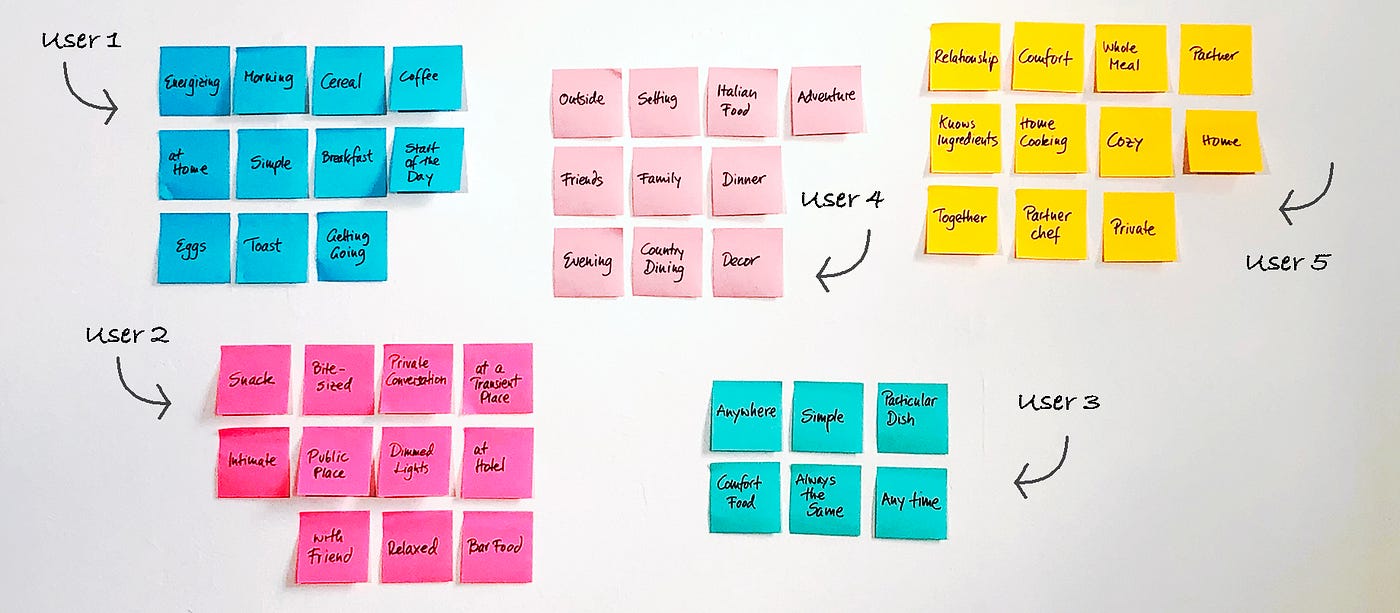 User 1
Energizing
Morning
Cereal
Coffee
at
Home
Simple
Breakfast
Start
of the
Day
Eggs
Toast
Getting
Going
User 2
Snack
Bite-
sized
Private
Conversation
at a
Transient
Place
Intimate
Public
Place
Dimmed
Lights
at
Hotel
with
Friend
Relaxed
Bar Food
Outside
Setting
Italian
Food
Adventure
Friends
Family
Dinner
Evening
Country
Dining
Decor
User 4
Anywhere
Simple
Particular
Dish
Comfort
Food
Always
the
Same
Any time
User 3
Relationship
Comfort
Whole
Meal
Partner
Knows
Ingredients
Home
Cooking
Cozy
Home
Together
Partner
chef
Private
User 5